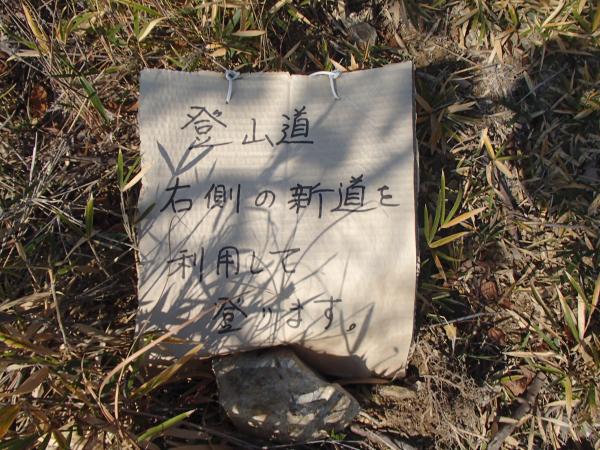 登山道
右側の新道を
利用して
登ります。